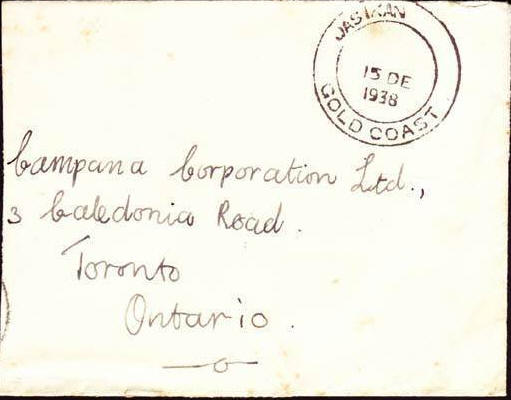 JASIKAN
15 DE
1938
GOLD COAST
Campana Corporation Ltd.,
3 Caledonia Road.
Toronto
Ontario.